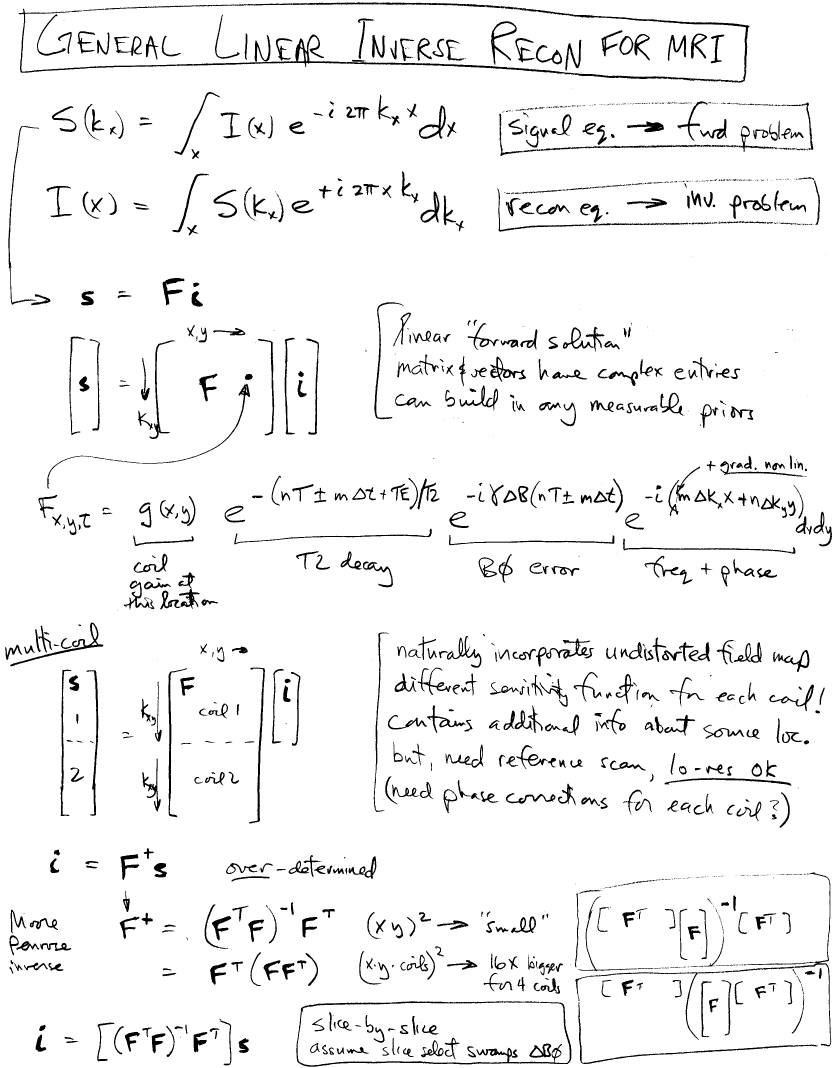 GENERAL LINEAR INVERSE RECON FOR MRI
S(kₓ) = ∫ₓ I(x) e^{-i 2π kₓ x} dx    signal eq. → fwd problem
I(x) = ∫ₓ S(kₓ) e^{+i 2π x kₓ} dkₓ    recon eq. → inv. problem
s = Fi
x,y →
[s] = k_{xy} ↓ [F i] [i]
linear "forward solution"
matrix & vectors have complex entries
can build in any measurable priors
+ grad. non lin.
F_{x,y,τ} = g(x,y) e^{-(nT ± mΔt + TE)/T2} e^{-iγΔB(nT ± mΔt)} e^{-i(mΔkₓx + nΔk_y y)} dxdy
coil gain at this location    T2 decay    BØ error    freq + phase
multi-coil
x,y →
[s 1 2] = k_{xy} ↓ k_{xy} ↓ [F coil 1 coil 2] [i]
naturally incorporates undistorted field map
different sensitivity function for each coil!
contains additional info about source loc.
but, need reference scan, lo-res OK
(need phase corrections for each coil?)
i = F⁺s    over-determined
Moore Penrose inverse
F⁺ = (FᵀF)⁻¹ Fᵀ    (xy)² → "small"    ([Fᵀ][F])⁻¹[Fᵀ]
= Fᵀ(FFᵀ)    (x·y·coils)² → 16x bigger for 4 coils    [Fᵀ]([F][Fᵀ])⁻¹
i = [(FᵀF)⁻¹Fᵀ]s
slice-by-slice
assume slice select swamps ΔBØ